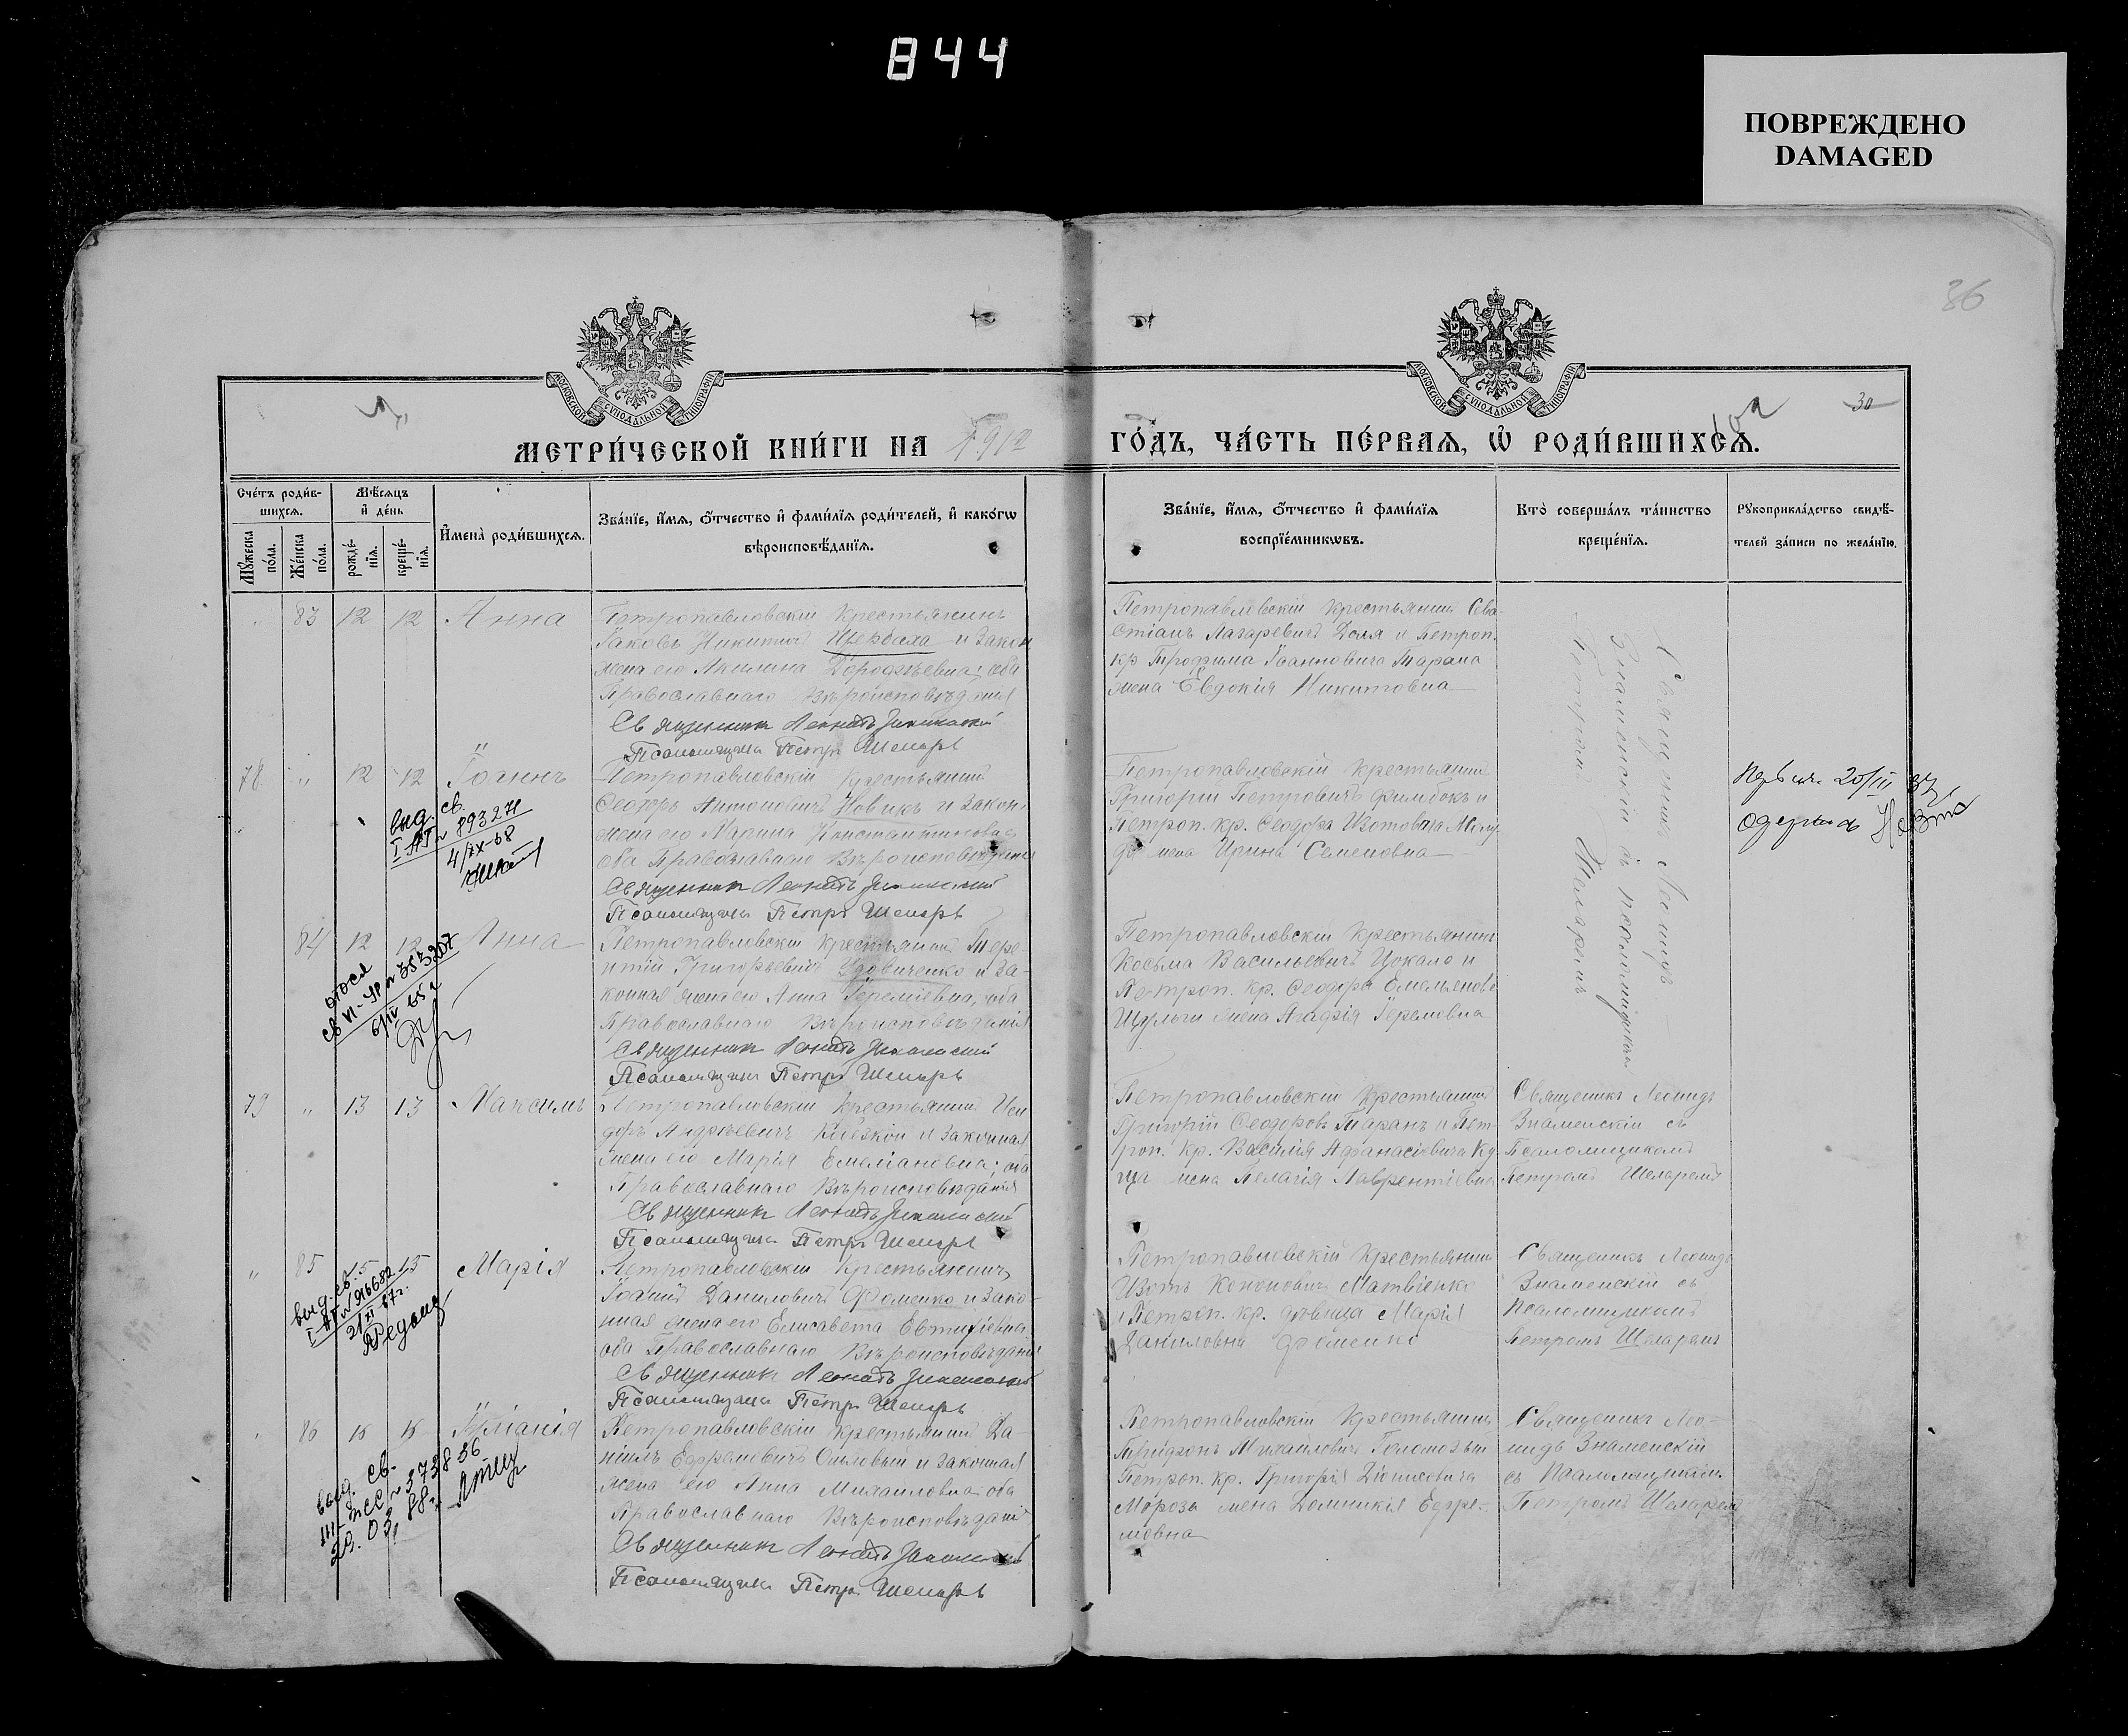 844
ПОВРЕЖДЕНО
DAMAGED
36
30
МОСКОВСКОЙ СѴНОДАЛЬНОЙ ТИПОГРАФІИ
МОСКОВСКОЙ СѴНОДАЛЬНОЙ ТИПОГРАФІИ
МЕТРИ́ЧЕСКОЙ КНИ́ГИ НА 1912
ГО́ДЪ, ЧА́СТЬ ПЕ́РВАЯ, Ѽ РОДИ́ВШИХСЯ.
Сче́тъ роди́в-
шихся.
Мѣ́сяцъ
и҆ де́нь
Му́жеска
по́ла.
Же́нска
по́ла.
рожде́-
нїя.
креще́-
нїя.
И҆мена̀ роди́вшихся.
Зва́нїе, и҆́мя, ѻ҆́тчество и҆ фами́лїя роди́телей, и҆ како́гѡ
вѣроисповѣ́данїя.
Зва́нїе, и҆́мя, ѻ҆́тчество и҆ фами́лїя
воспрїе́мникѡвъ.
Кто̀ соверша́лъ та́инство
креще́нїя.
Рꙋкоприкла́дство свидѣ́-
телей за́писи по жела́нїю.
83 12 12 Анна
Петропавловскій крестьянинъ
Іаковъ Никитинъ Щербаха и закон
жена его Акилина Дорофѣевна; оба
Православнаго Вѣроисповѣданія
Священникъ Леонидъ Знаменскій
Псаломщикъ Петръ Шеларь
Петропавловскій крестьянинъ Сева-
стіанъ Лазаревичъ Доля и Петроп.
кр Трофима Іоанновича Тарана
жена Евдокія Никитовна
Священникъ Леонидъ
Знаменскій съ псаломщикомъ
Петромъ Шеларемъ
78 " 12 12 Іоаннъ
выд. св.
I АП № 893271
4/IX-68
Петропавловскій крестьянинъ
Ѳеодоръ Антоновичъ Новикъ и закон.
жена его Марина Константиновна
оба Православнаго Вѣроисповѣданія
Священникъ Леонидъ Знаменскій
Псаломщикъ Петръ Шеларь
Петропавловскій крестьянинъ
Григорій Петровичъ и
Петроп. кр. Ѳеодора Изотовича
жена Ирина Семеновна
20/III 37
84 12 12 Анна
Петропавловскій крестьянинъ Тере-
нтій Григорьевичъ Удовиченко и за-
конная жена его Анна Іереміевна, оба
Православнаго Вѣроисповѣданія
Священникъ Леонидъ Знаменскій
Псаломщикъ Петръ Шеларь
Петропавловскій крестьянинъ
Косьма Васильевичъ Цокало и
Петроп. кр. Ѳеодора Емельянова
Шульги жена Агафія Іеремовна
79 " 13 13 Максимъ
Петропавловскій крестьянинъ Иси
доръ Андреевичъ и законная
жена его Марія Емеліановна; оба
Православнаго Вѣроисповѣданія
Священникъ Леонидъ Знаменскій
Псаломщикъ Петръ Шеларь
Петропавловскій крестьянинъ
Григорій Ѳеодоровъ Таранъ и Пет-
роп. кр. Василія Афанасіевича Ку-
ца жена Пелагія Лаврентіевна
Священникъ Леонидъ
Знаменскій съ
Псаломщикомъ
Петромъ Шеларемъ
" 85 15 15 Марія
выд. св.
I АП № 916682
21/XI 67г.
Петропавловскій крестьянинъ
Іоаннъ Даниловичъ Фоменко и зако-
нная жена его Елисавета Евтихіевна
оба Православнаго Вѣроисповѣданія
Священникъ Леонидъ Знаменскій
Псаломщикъ Петръ Шеларь
Петропавловскій крестьянинъ
Изотъ Кононовичъ Матвіенко
и Петроп. кр. дѣвица Марія
Даниловна Фоменко
Священникъ Леонидъ
Знаменскій съ
псаломщикомъ
Петромъ Шеларемъ
86 15 15 Іуліанія
выд. св.
29.03.88г.
Петропавловскій крестьянинъ Да
ніилъ Ефремовичъ и законная
жена его Анна Михаиловна оба
Православнаго Вѣроисповѣданія
Священникъ Леонидъ Знаменскій
Псаломщикъ Петръ Шеларь
Петропавловскій крестьянинъ
Трифонъ Михайловичъ и
Петроп. кр. Григорія Діонисовича
Мороза жена Домникія Ефре-
мовна
Священникъ Лео-
нидъ Знаменскій
съ Псаломщиком.
Петромъ Шеларемъ